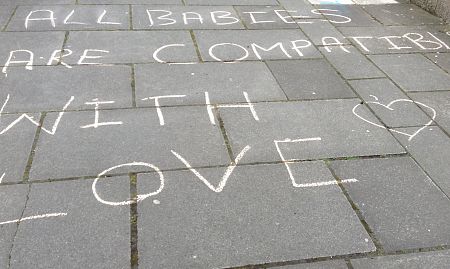 ALL BABIES
ARE COMPATIBL
WITH
LOVE